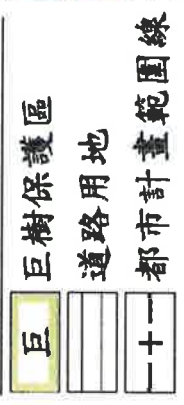 巨 巨樹保護區
道路用地
都市計畫範圍線